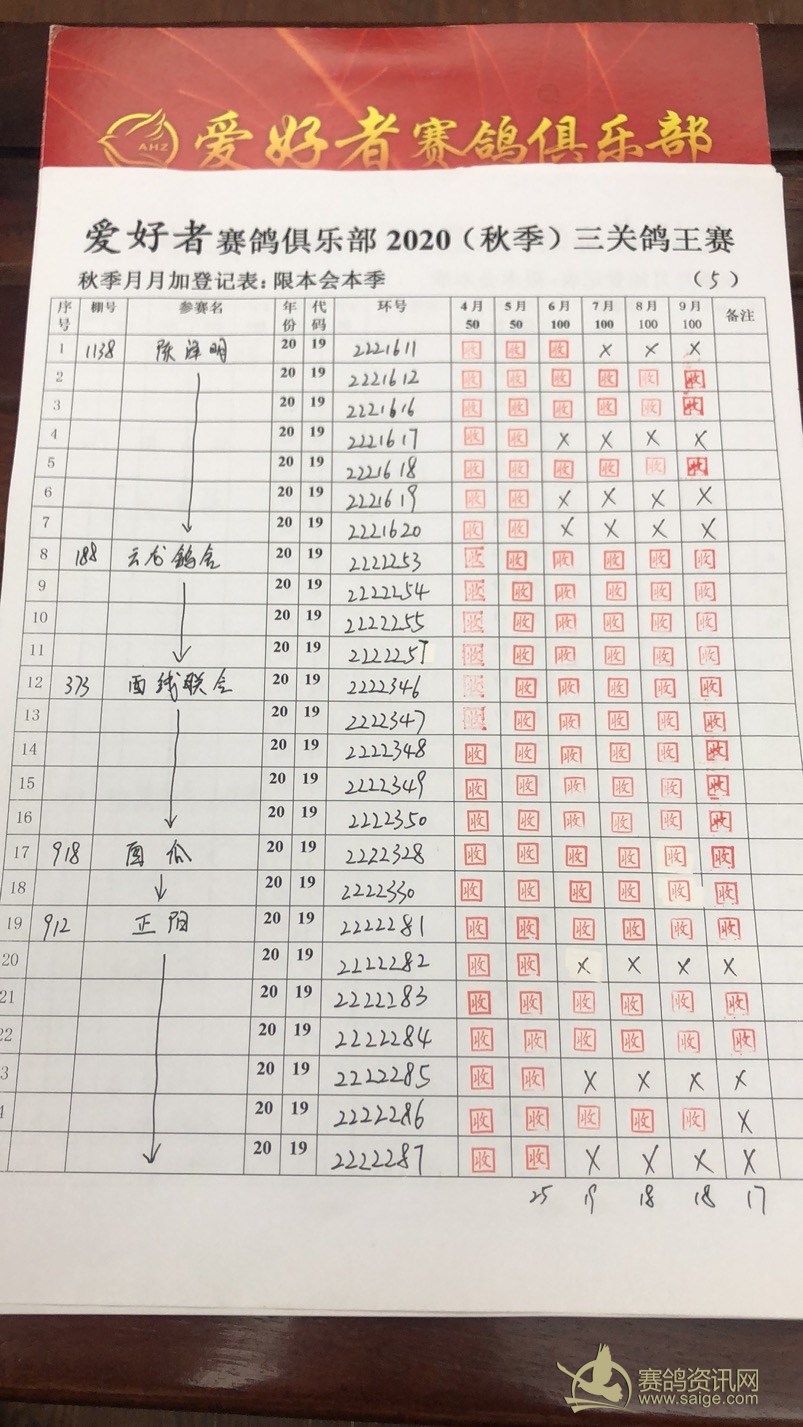 AHZ 爱好者赛鸽俱乐部
爱好者赛鸽俱乐部 2020（秋季）三关鸽王赛
秋季月月加登记表：限本会本季 （5）
序号 棚号 参赛名 年份 代码 环号 4月 50 5月 50 6月 100 7月 100 8月 100 9月 100 备注
1 1138 陈泽明 20 19 2221611 收 收 收 X X X
2 20 19 2221612 收 收 收 收 收 收
3 20 19 2221616 收 收 收 收 收 收
4 20 19 2221617 收 收 X X X X
5 20 19 2221618 收 收 收 收 收 收
6 20 19 2221619 收 收 X X X X
7 20 19 2221620 收 收 X X X X
8 188 云龙鸽舍 20 19 2222253 收 收 收 收 收 收
9 20 19 2222254 收 收 收 收 收 收
10 20 19 2222255 收 收 收 收 收 收
11 20 19 2222257 收 收 收 收 收 收
12 373 西线联合 20 19 2222346 收 收 收 收 收 收
13 20 19 2222347 收 收 收 收 收 收
14 20 19 2222348 收 收 收 收 收 收
15 20 19 2222349 收 收 收 收 收 收
16 20 19 2222350 收 收 收 收 收 收
17 918 西瓜 20 19 2222328 收 收 收 收 收 收
18 20 19 2222330 收 收 收 收 收 收
19 912 正阳 20 19 2222281 收 收 收 收 收 收
20 20 19 2222282 收 收 X X X X
21 20 19 2222283 收 收 收 收 收 收
22 20 19 2222284 收 收 收 收 收 收
3 20 19 2222285 收 收 X X X X
4 20 19 2222286 收 收 收 收 收 X
20 19 2222287 收 收 X X X X
25 19 18 18 17
赛鸽资讯网
www.saige.com